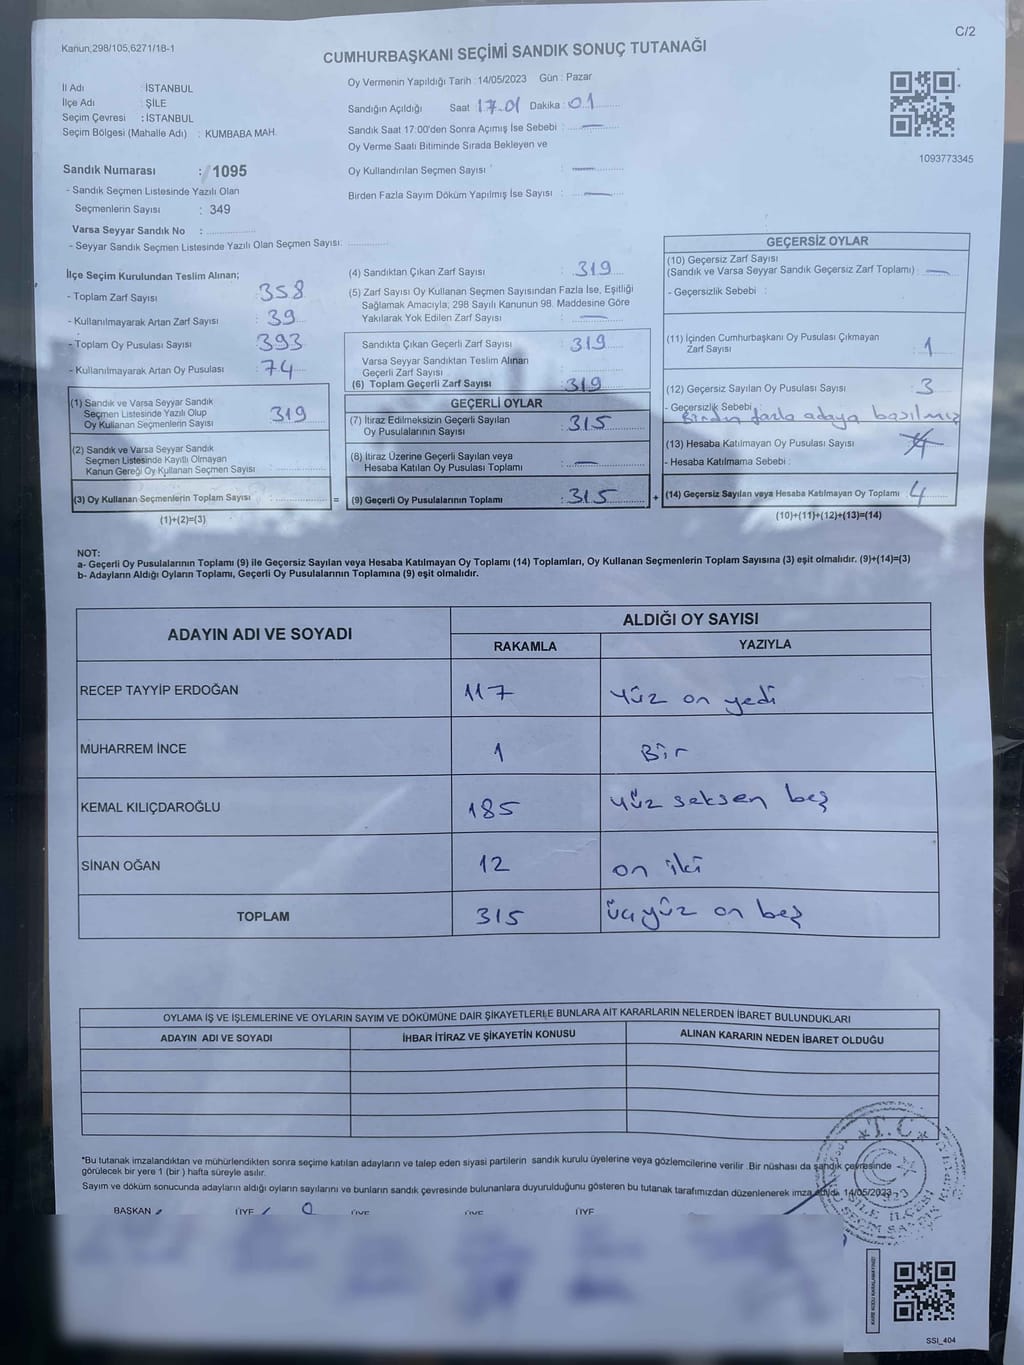 C/2
Kanun;298/105,6271/18-1
CUMHURBAŞKANI SEÇİMİ SANDIK SONUÇ TUTANAĞI
İl Adı : İSTANBUL
İlçe Adı : ŞİLE
Seçim Çevresi : İSTANBUL
Seçim Bölgesi (Mahalle Adı) : KUMBABA MAH.
Oy Vermenin Yapıldığı Tarih : 14/05/2023 Gün : Pazar
Sandığın Açıldığı Saat 17.01 Dakika : 01
Sandık Saat 17:00'den Sonra Açımış İse Sebebi : —
Oy Verme Saati Bitiminde Sırada Bekleyen ve
Oy Kullandırılan Seçmen Sayısı : —
Birden Fazla Sayım Döküm Yapılmış İse Sayısı : —
1093773345
Sandık Numarası : 1095
- Sandık Seçmen Listesinde Yazılı Olan
Seçmenlerin Sayısı : 349
Varsa Seyyar Sandık No :
- Seyyar Sandık Seçmen Listesinde Yazılı Olan Seçmen Sayısı:
İlçe Seçim Kurulundan Teslim Alınan;
- Toplam Zarf Sayısı : 358
- Kullanılmayarak Artan Zarf Sayısı : 39
- Toplam Oy Pusulası Sayısı : 393
- Kullanılmayarak Artan Oy Pusulası : 74
(1) Sandık ve Varsa Seyyar Sandık
Seçmen Listesinde Yazılı Olup
Oy Kullanan Seçmenlerin Sayısı : 319
(2) Sandık ve Varsa Seyyar Sandık
Seçmen Listesinde Kayıtlı Olmayan
Kanun Gereği Oy Kullanan Seçmen Sayısı :
(3) Oy Kullanan Seçmenlerin Toplam Sayısı : =
(1)+(2)=(3)
(4) Sandıktan Çıkan Zarf Sayısı : 319
(5) Zarf Sayısı Oy Kullanan Seçmen Sayısından Fazla İse, Eşitliği
Sağlamak Amacıyla; 298 Sayılı Kanunun 98. Maddesine Göre
Yakılarak Yok Edilen Zarf Sayısı : —
Sandıkta Çıkan Geçerli Zarf Sayısı : 319
Varsa Seyyar Sandıktan Teslim Alınan
Geçerli Zarf Sayısı :
(6) Toplam Geçerli Zarf Sayısı : 319
GEÇERLİ OYLAR
(7) İtiraz Edilmeksizin Geçerli Sayılan
Oy Pusulalarının Sayısı : 315
(8) İtiraz Üzerine Geçerli Sayılan veya
Hesaba Katılan Oy Pusulası Toplamı : —
(9) Geçerli Oy Pusulalarının Toplamı : 315 +
GEÇERSİZ OYLAR
(10) Geçersiz Zarf Sayısı
(Sandık ve Varsa Seyyar Sandık Geçersiz Zarf Toplamı) : —
- Geçersizlik Sebebi :
(11) İçinden Cumhurbaşkanı Oy Pusulası Çıkmayan
Zarf Sayısı : 1
(12) Geçersiz Sayılan Oy Pusulası Sayısı : 3
- Geçersizlik Sebebi : Birden fazla adaya basılmış
(13) Hesaba Katılmayan Oy Pusulası Sayısı
- Hesaba Katılmama Sebebi :
(14) Geçersiz Sayılan veya Hesaba Katılmayan Oy Toplamı : 4
(10)+(11)+(12)+(13)=(14)
NOT:
a- Geçerli Oy Pusulalarının Toplamı (9) ile Geçersiz Sayılan veya Hesaba Katılmayan Oy Toplamı (14) Toplamları, Oy Kullanan Seçmenlerin Toplam Sayısına (3) eşit olmalıdır. (9)+(14)=(3)
b- Adayların Aldığı Oyların Toplamı, Geçerli Oy Pusulalarının Toplamına (9) eşit olmalıdır.
ADAYIN ADI VE SOYADI
ALDIĞI OY SAYISI
RAKAMLA YAZIYLA
RECEP TAYYİP ERDOĞAN 117 Yüz on yedi
MUHARREM İNCE 1 Bir
KEMAL KILIÇDAROĞLU 185 yüz seksen beş
SİNAN OĞAN 12 on iki
TOPLAM 315 üçyüz on beş
OYLAMA İŞ VE İŞLEMLERİNE VE OYLARIN SAYIM VE DÖKÜMÜNE DAİR ŞİKAYETLERLE BUNLARA AİT KARARLARIN NELERDEN İBARET BULUNDUKLARI
ADAYIN ADI VE SOYADI İHBAR İTİRAZ VE ŞİKAYETİN KONUSU ALINAN KARARIN NEDEN İBARET OLDUĞU
*Bu tutanak imzalandıktan ve mühürlendikten sonra seçime katılan adayların ve talep eden siyasi partilerin sandık kurulu üyelerine veya gözlemcilerine verilir .Bir nüshası da sandık çevresinde
görülecek bir yere 1 (bir ) hafta süreyle asılır.
Sayım ve döküm sonucunda adayların aldığı oyların sayılarını ve bunların sandık çevresinde bulunanlara duyurulduğunu gösteren bu tutanak tarafımızdan düzenlenerek imza edildi. 14/05/2023
T.C.
ŞİLE İLÇESİ
BAŞKAN ÜYE ÜYE ÜYE ÜYE
SSI_404